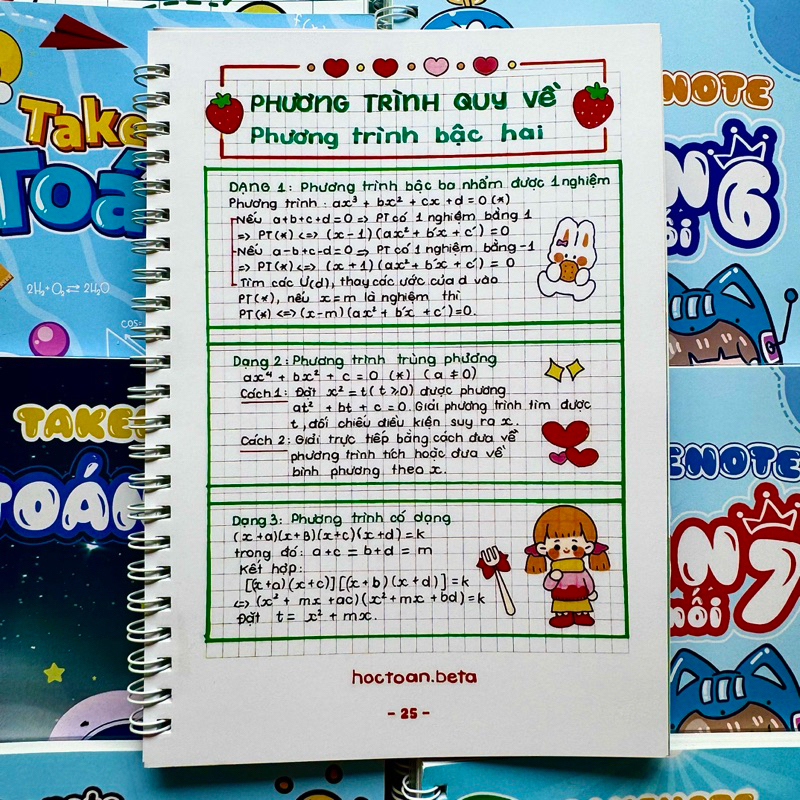 PHƯƠNG TRÌNH QUY VỀ
Phương trình bậc hai
DẠNG 1: Phương trình bậc ba nhẩm được 1 nghiệm
Phương trình: ax³ + bx² + cx + d = 0 (*)
Nếu a+b+c+d=0 => PT có 1 nghiệm bằng 1
=> PT(*) <=> (x-1)(ax²+ b'x + c') = 0
-Nếu a-b+c-d=0 => PT có 1 nghiệm bằng -1
=> PT(*) <=> (x+1)(ax²+ b'x + c') = 0
-Tìm các Ư(d), thay các ước của d vào
PT(*), nếu x=m là nghiệm thì
PT(*) <=> (x-m)(ax²+ b'x + c')=0.
Dạng 2: Phương trình trùng phương
ax⁴ + bx² + c = 0 (*) (a ≠ 0)
Cách 1: Đặt x² = t (t ≥ 0) được phương
at² + bt + c = 0. Giải phương trình tìm được
t, đối chiếu điều kiện suy ra x.
Cách 2: Giải trực tiếp bằng cách đưa về
phương trình tích hoặc đưa về
bình phương theo x.
Dạng 3: Phương trình có dạng
(x+a)(x+B)(x+c)(x+d)=k
trong đó: a+c = b+d = m
Kết hợp:
[(x+a)(x+c)][(x+b)(x+d)] = k
<=> (x²+ mx +ac)(x²+mx +bd)=k
Đặt t= x² + mx.
hoctoan.beta
- 25 -
Take
2H₂+O₂⇄2H₂O
COS=
TAKE
TOÁN
NOTE
6
ENOTE
7